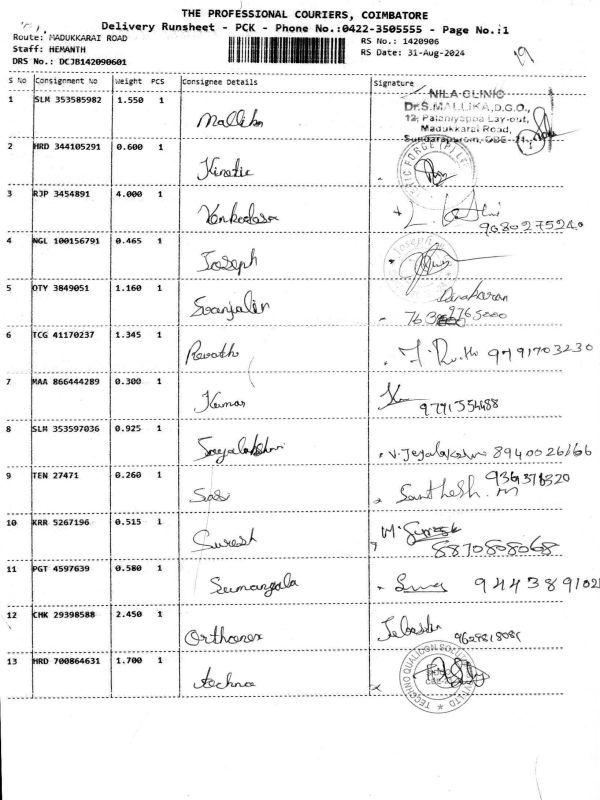 THE PROFESSIONAL COURIERS, COIMBATORE
Delivery Runsheet - PCK - Phone No.:0422-3505555 - Page No.:1
Route: MADUKKARAI ROAD
RS No.: 1420906
Staff: HEMANTH
RS Date: 31-Aug-2024
19
DRS No.: DCJB142090601
S No Consignment No Weight PCS Consignee Details Signature
1 SLM 353585982 1.550 1 Mallika
NILA CLINIC
Dr.S.MALLIKA,D.G.O.,
12, Palaniyappa Lay-out,
Madukkarai Road,
Sundarapuram, CBE
2 HRD 344105291 0.600 1 Kinetic
3 RJP 3454891 4.000 1 Venkadesa
9080275240
4 NGL 100156791 0.465 1 Joseph
Joseph
5 OTY 3849051 1.160 1
Danakaran
6 TCG 41170237 1.345 1 Revathi 9791703230
7 MAA 866444289 0.300 1 Kumar
9791554488
8 SLM 353597036 0.925 1 V. Jeyalakshmi 8940026166
9 TEN 27471 0.260 1 Sasi Santhesh. M
10 KRR 5267196 0.515 1 Suresh M. Suresh
8870808068
11 PGT 4597639 0.580 1 Sumangala
12 CHK 29398588 2.450 1 Orthonex
9629818081
13 HRD 700864631 1.700 1 techno
TECHNO QUALICON SOLUTION (P) LTD